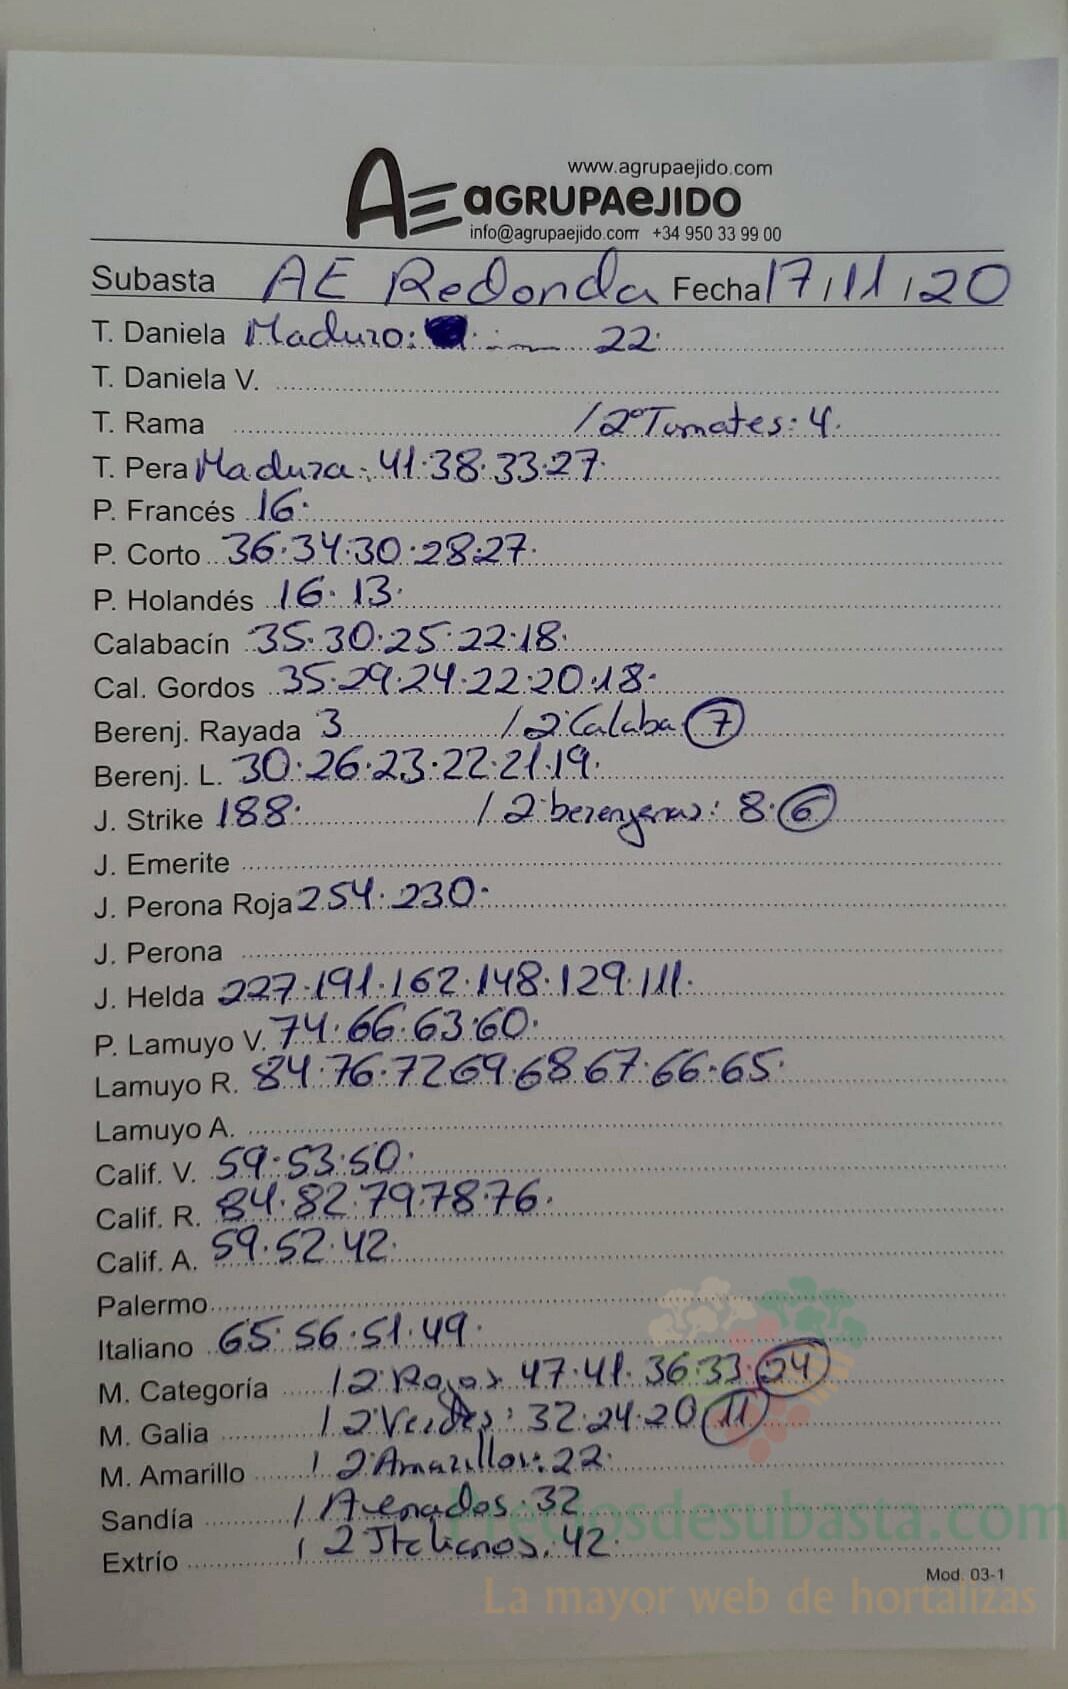 www.agrupaejido.com
AE aGRUPAeJIDO
info@agrupaejido.com +34 950 33 99 00
Subasta AE Redonda Fecha 17/11/20
T. Daniela Maduro: 22.
T. Daniela V.
T. Rama / 2ºTomates: 4.
T. Pera Madura: 41.38.33.27.
P. Francés 16.
P. Corto 36.34.30.28.27.
P. Holandés 16.13.
Calabacín 35.30.25.22.18.
Cal. Gordos 35.29.24.22.20.18.
Berenj. Rayada 3 / 2ºCalaba. 7
Berenj. L. 30.26.23.22.21.19.
J. Strike 188. / 2ºberenjenas: 8.6
J. Emerite
J. Perona Roja 254.230.
J. Perona
J. Helda 227.191.162.148.129.111.
P. Lamuyo V. 74.66.63.60.
Lamuyo R. 84.76.72.69.68.67.66.65.
Lamuyo A.
Calif. V. 59.53.50.
Calif. R. 84.82.79.78.76.
Calif. A. 59.52.42.
Palermo
Italiano 65.56.51.49.
M. Categoría / 2ºRojos 47.41.36.33.24
M. Galia / 2ºVerdes: 32.24.20.11
M. Amarillo / 2ºAmarillos: 22.
Sandía / Asenados. 32
Extrío / 2ºItalianos. 42.
Preciosdesubasta.com
Mod. 03-1
La mayor web de hortalizas